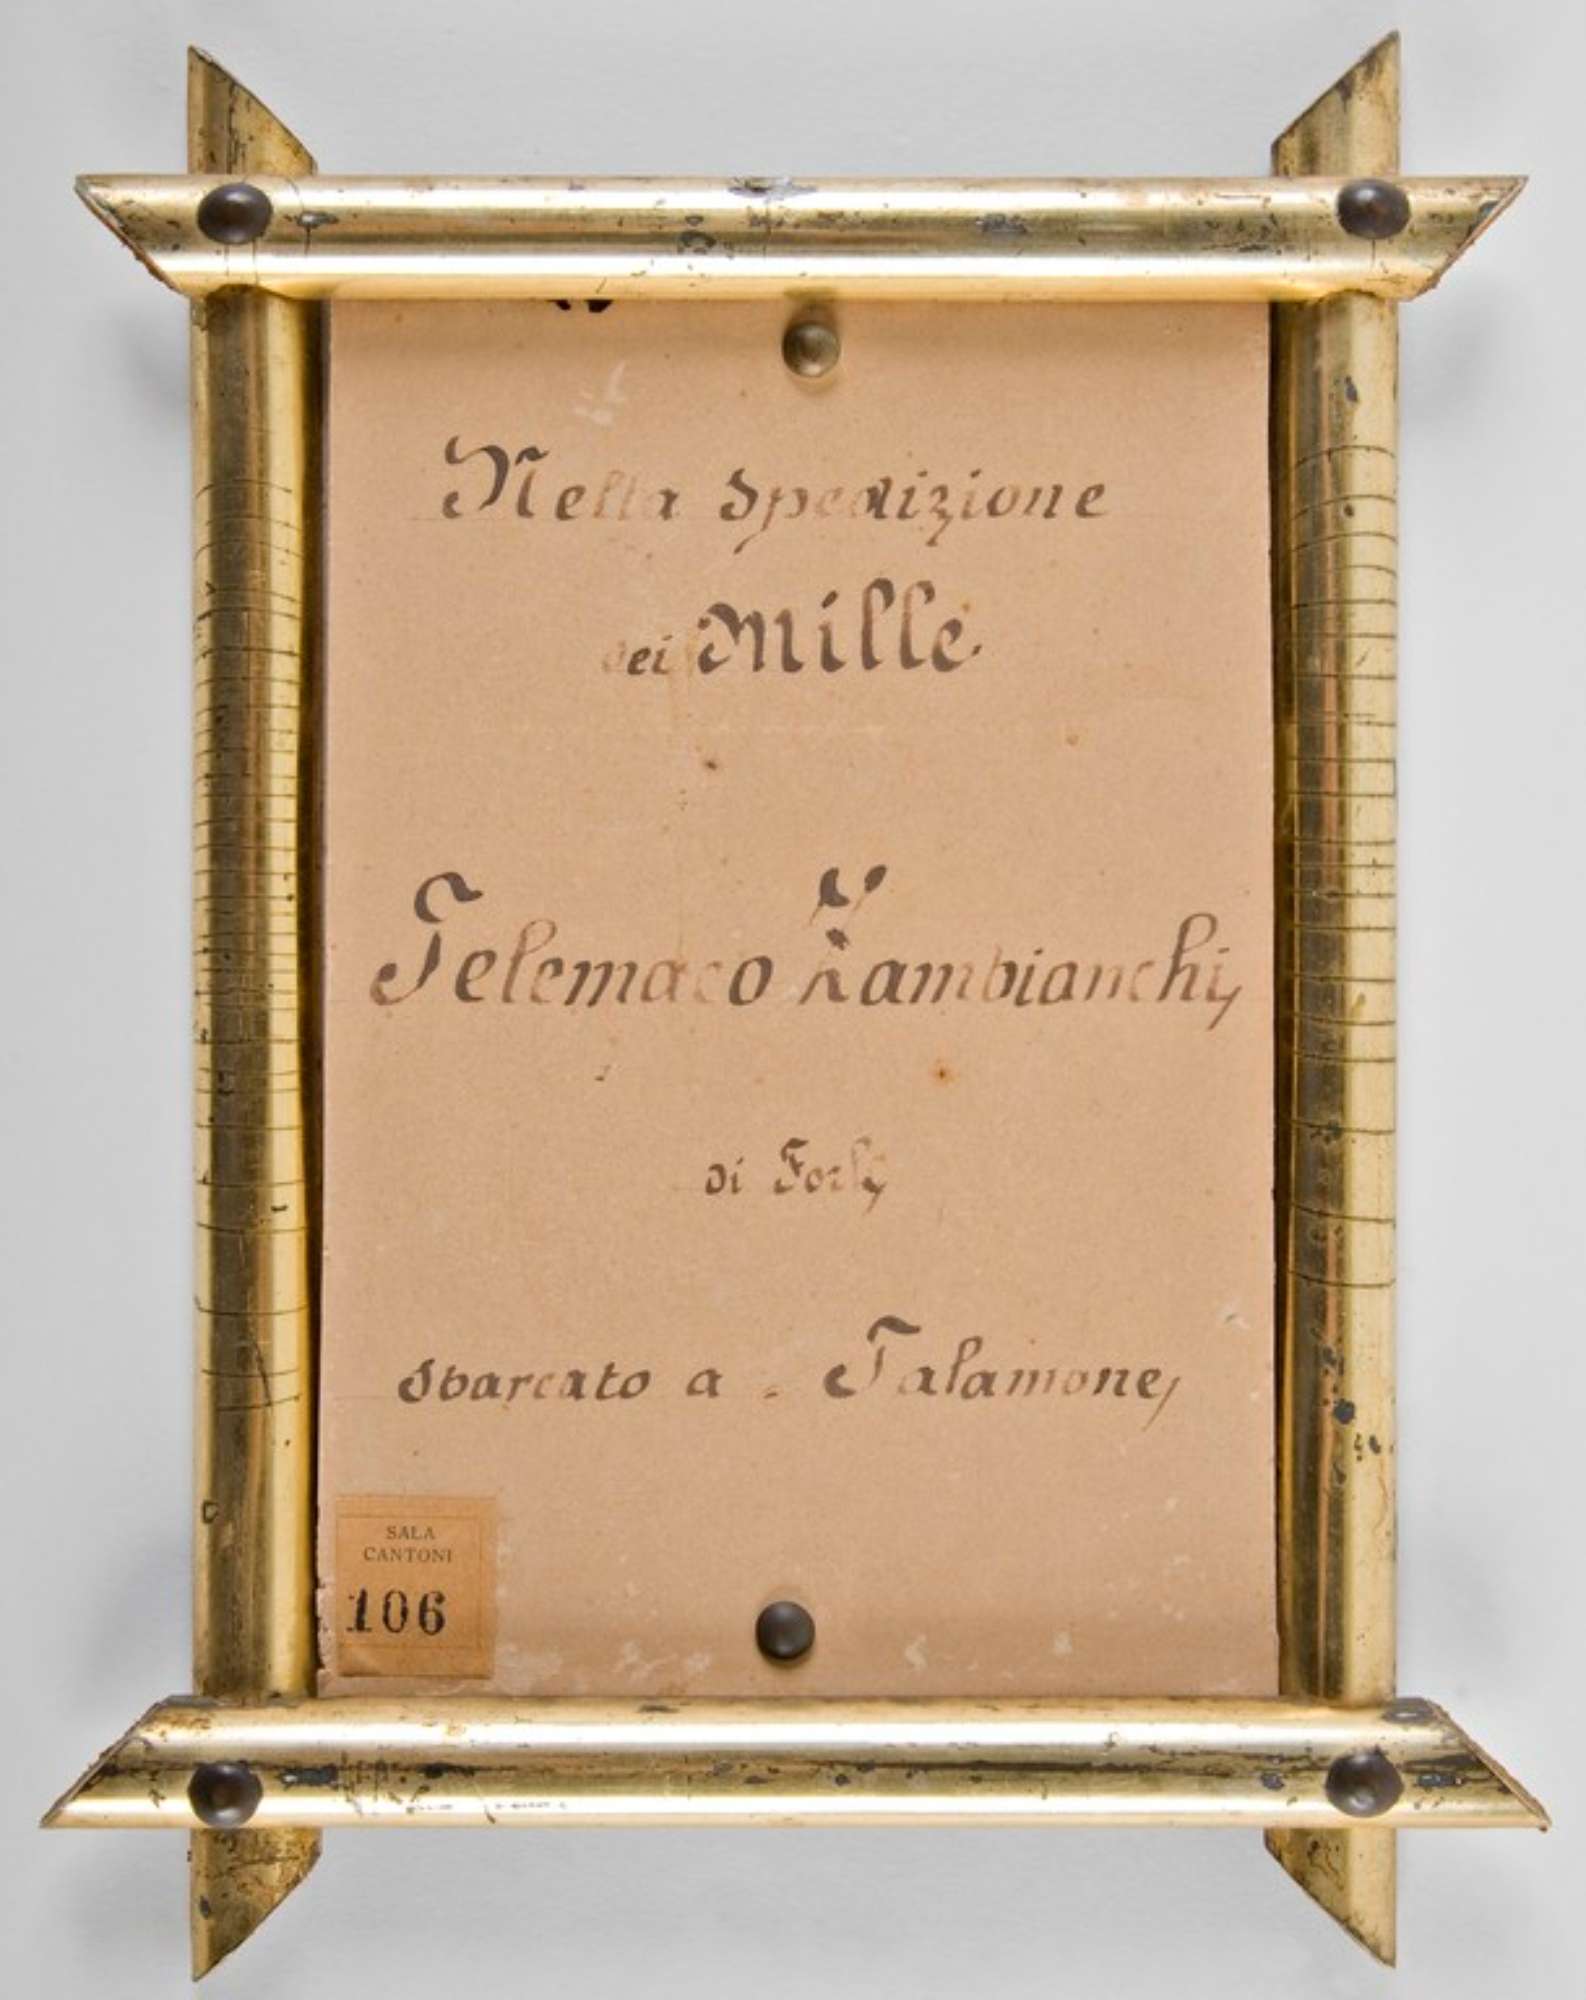 Nella spedizione
dei Mille
Telemaco Zambianchi,
di Forlì,
sbarcato a Talamone,
SALA
CANTONI
106